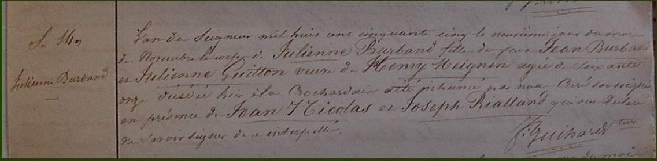 S. 149
Julienne Burband
L'an du Seigneur mil huit cent cinquante cinq le neuvième jour du mois
de Novembre le corps de Julienne Burband fille de feu Jean Burband
et Julienne Guitton veuve de Henry Mignen agée de soixante
onze décédé hier à la Rochardai a été inhumé par nous Curé soussigné
en présence de Jean Nicolas et Joseph Rialland qui ont déclaré
ne savoir signer de ce interpellé